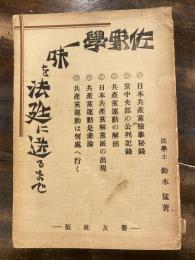 佐野學一味
を法廷に送るまで
◎日本共產黨檢擧秘錄
◎黨中央部の公判記錄
◎共產黨運動の解剖
◎日本共產黨解黨派の出現
◎共產黨運動是非論
◎共產黨運動は何處へ行く
法學士 鈴木猛著
警友社版